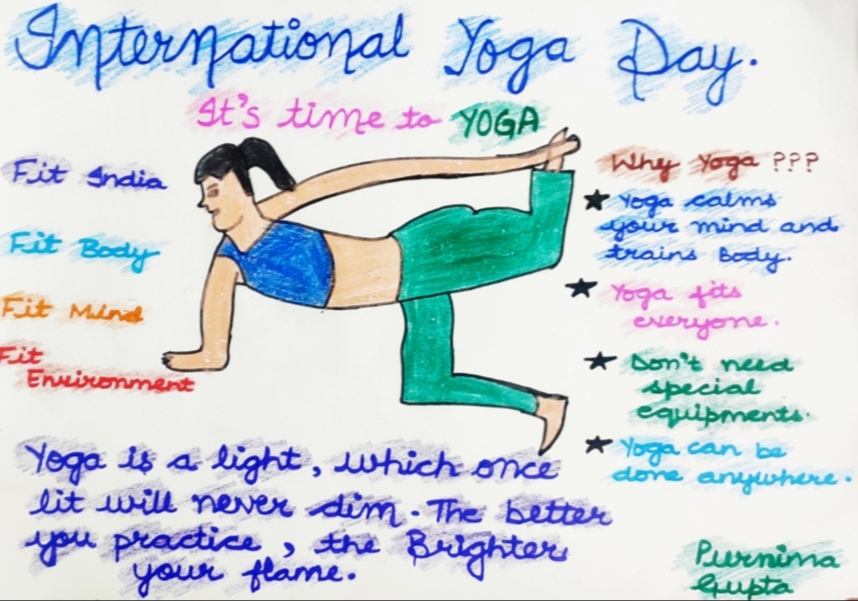 International Yoga Day.
It's time to YOGA
Fit India
Fit Body
Fit Mind
Fit
Environment
Why Yoga ???
★ Yoga calms
your mind and
trains Body.
★ Yoga fits
everyone.
★ Don't need
special
equipments.
★ Yoga can be
done anywhere.
Yoga is a light, which once
lit will never dim. The better
you practice, the Brighter
your flame.
Purnima
Gupta